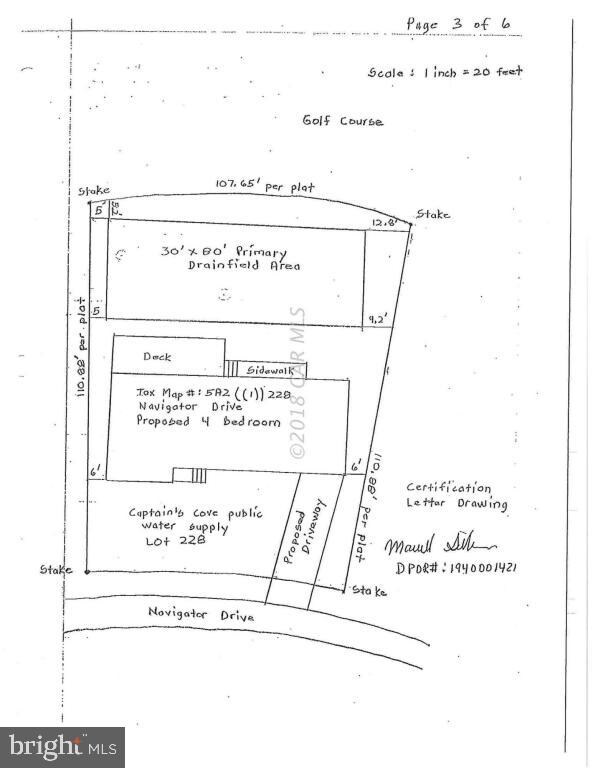 Page 3 of 6
Scale : 1 inch = 20 feet
Golf Course
107.65' per plat
Stake
Stake
5'
12.8'
30' x 80' Primary
Drainfield Area
110.88' per plat
5
9.2'
Deck
Sidewalk
Tax Map #: 5A2 ((1)) 228
Navigator Drive
Proposed 4 bedroom
©2018 CAR MLS
6'
6'
110.88' per plat
Certification
Letter Drawing
Captain's Cove public
water supply
Lot 228
Proposed
Driveway
DPOR#: 1940001421
Stake
Stake
Navigator Drive
bright MLS